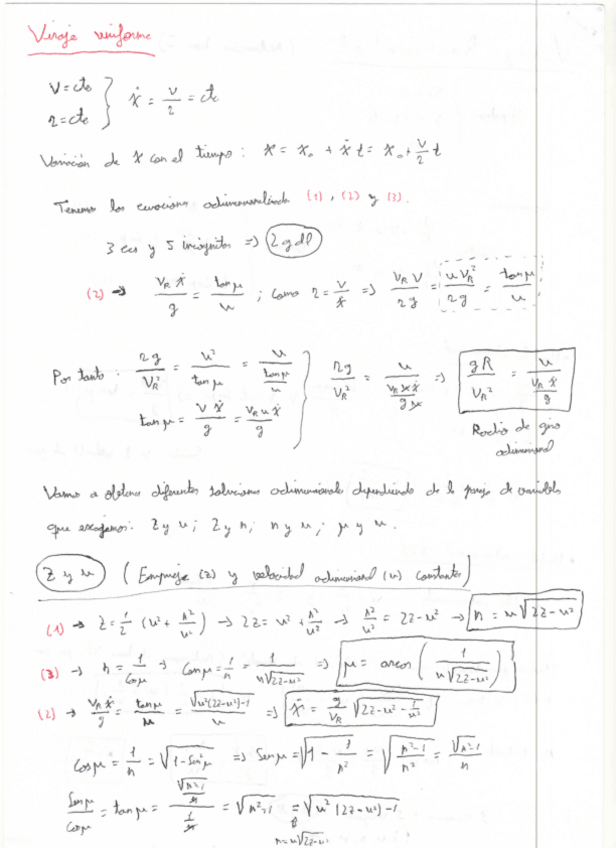 Viraje uniforme
V = cte
r = cte } ẋ = V/r = cte
Variación de x con el tiempo: x = x₀ + ẋ t = x₀ + V/r t
Tenemos las ecuaciones adimensionalizadas (1), (2) y (3).
3 ecs y 5 incógnitas => 2 gdl
(2) → V_R ẋ / g = tan μ / u ; como r = V/ẋ => V_R V / r g = u V_R² / r g = tan μ / u
Por tanto: r g / V_R² = u² / tan μ = u / (tan μ / u)
tan μ = V ẋ / g = V_R u ẋ / g } r g / V_R² = u / (V_R u ẋ / g u) => g R / V_R² = u / (V_R ẋ / g)
Radio de giro
adimensional
Vamos a obtener diferentes soluciones adimensionales dependiendo de la pareja de variables
que escogemos: z y u ; z y n ; n y u ; μ y u.
z y u (Empuje (z) y velocidad adimensional (u) constantes)
(1) → z = 1/2 (u² + n²/u²) → 2z = u² + n²/u² → n²/u² = 2z - u² → n = u√(2z - u²)
(3) → n = 1/cos μ → cos μ = 1/n = 1/(u√(2z - u²)) => μ = arcos (1/(u√(2z - u²)))
(2) → V_R ẋ / g = tan μ / u = √(u²(2z - u²) - 1) / u => ẋ = g/V_R √(2z - u² - 1/u²)
cos μ = 1/n = √(1 - sen² μ) => sen μ = √(1 - 1/n²) = √((n² - 1)/n²) = √(n² - 1)/n
sen μ / cos μ = tan μ = (√(n² - 1)/n) / (1/n) = √(n² - 1) = √(u² (2z - u²) - 1)
n = u√(2z - u²)